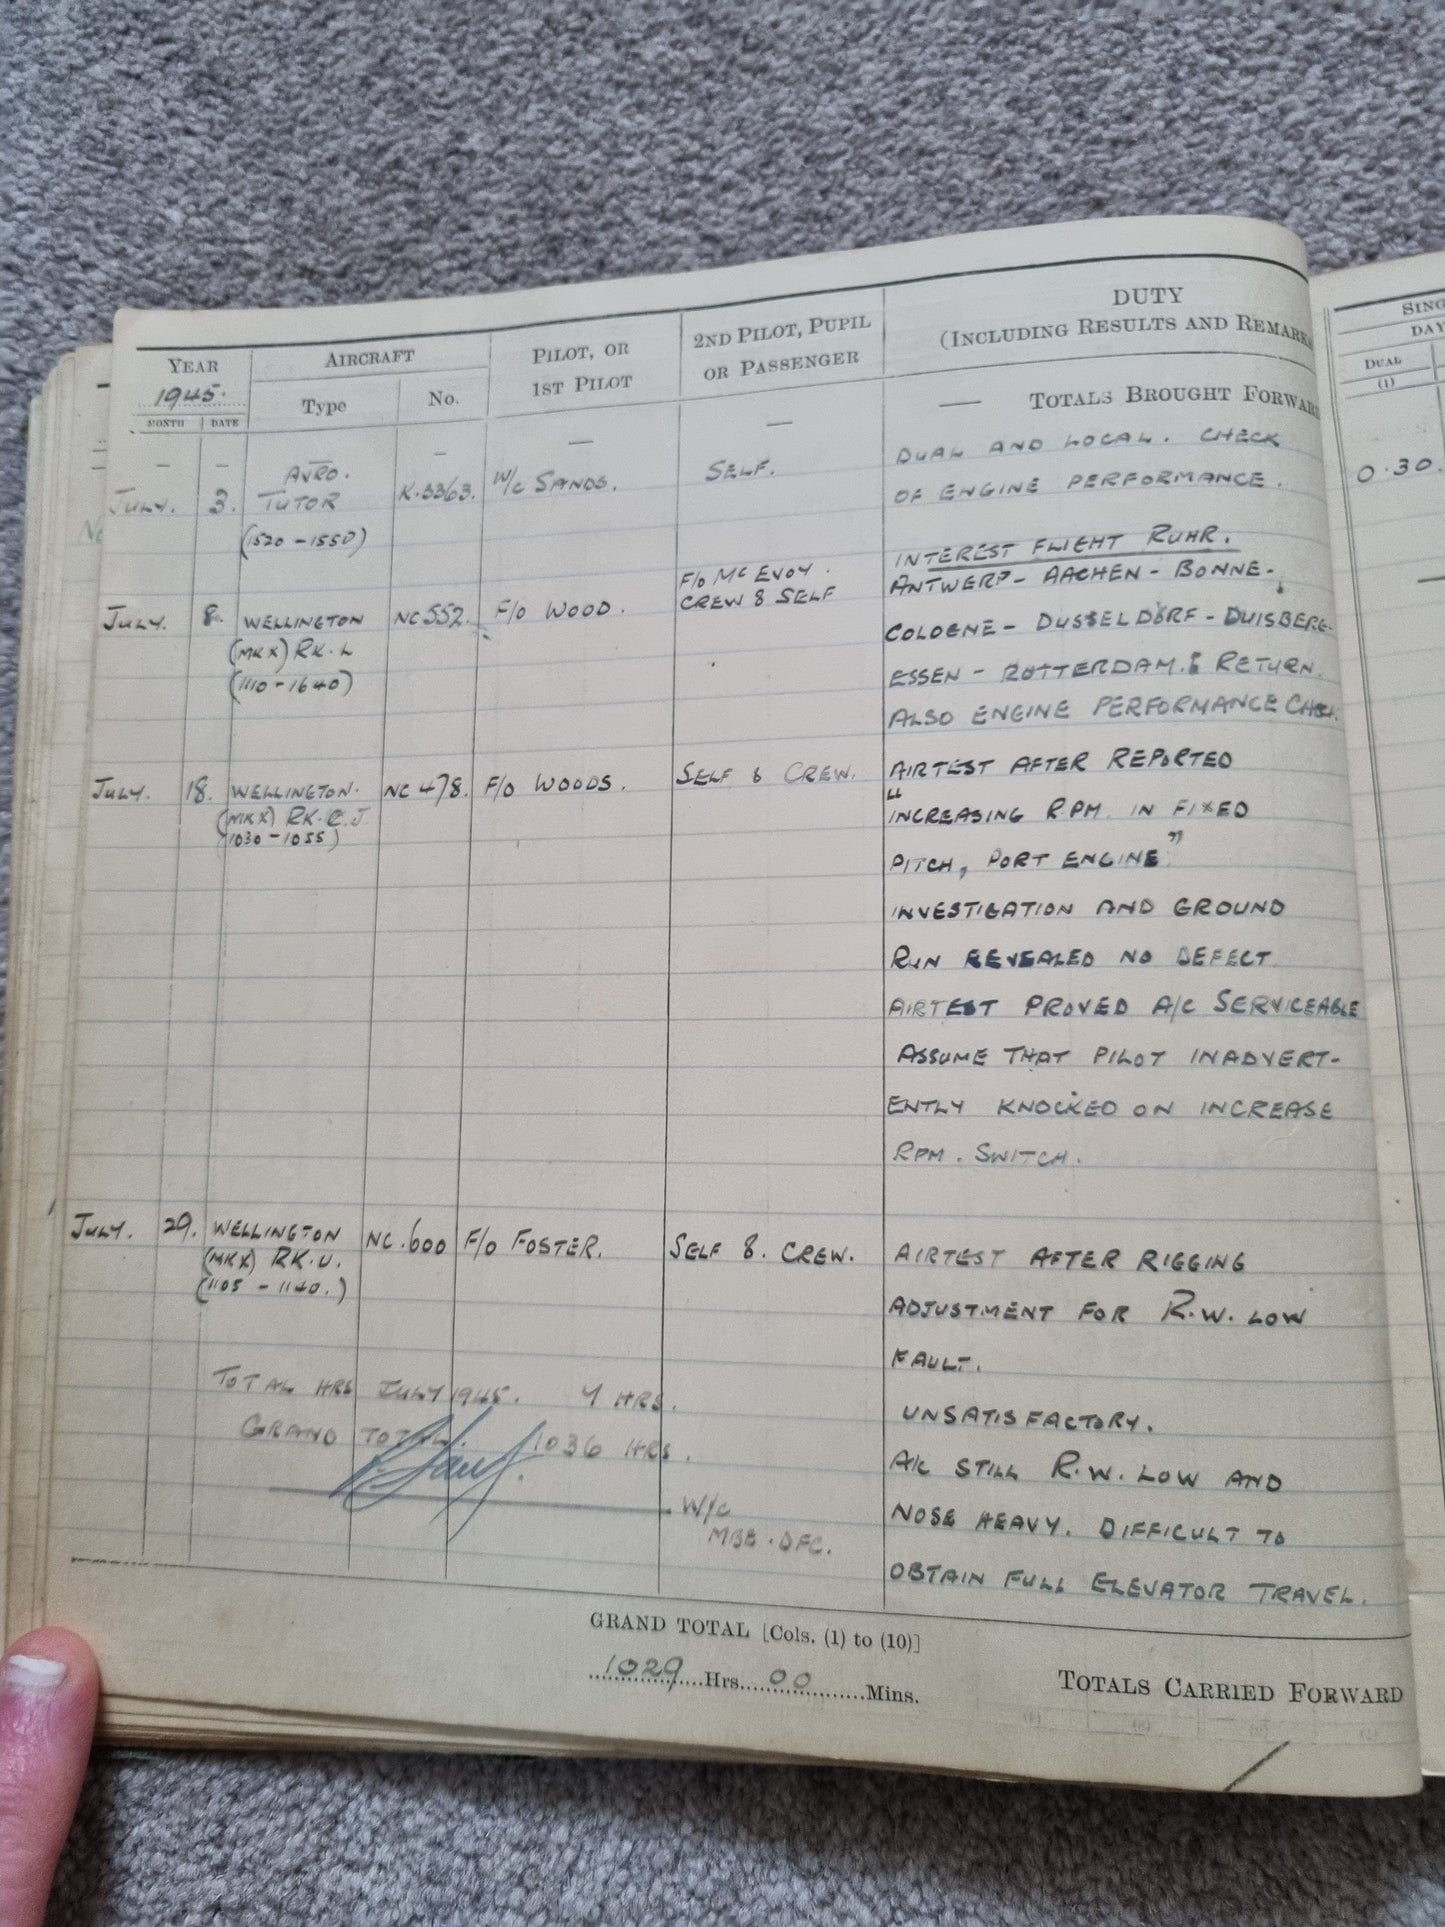 YEAR
1945.
MONTH DATE
AIRCRAFT
Type No.
PILOT, OR
1ST PILOT
2ND PILOT, PUPIL
OR PASSENGER
DUTY
(INCLUDING RESULTS AND REMARK
SING
DAY
DUAL
(1)
— — — — — — — TOTALS BROUGHT FORWAR
JULY. 3. AVRO. TUTOR K.3363. W/C SANDS. SELF. DUAL AND LOCAL. CHECK 0.30.
(1520 - 1550) OF ENGINE PERFORMANCE.
INTEREST FLIGHT RUHR.
JULY. 8. WELLINGTON NC 552. F/O WOOD. F/O MC EVOY. ANTWERP - AACHEN - BONNE -
(MK X) RK. L CREW & SELF COLOGNE - DUSSELDORF - DUISBERG-
(1110 - 1640) ESSEN - ROTTERDAM. & RETURN.
ALSO ENGINE PERFORMANCE CHECK.
JULY. 18. WELLINGTON. NC 478. F/O WOODS. SELF & CREW. AIRTEST AFTER REPORTED
(MKX) RK. J "INCREASING R.P.M. IN FIXED
1030 - 1055) PITCH, PORT ENGINE."
INVESTIGATION AND GROUND
RUN REVEALED NO DEFECT
AIRTEST PROVED A/C SERVICEABLE
ASSUME THAT PILOT INADVERT-
ENTLY KNOCKED ON INCREASE
RPM. SWITCH.
JULY. 29. WELLINGTON NC.600 F/O FOSTER. SELF & CREW. AIRTEST AFTER RIGGING
(MKX) RK.U. ADJUSTMENT FOR R.W. LOW
(1105 - 1140.) FAULT.
TOTAL HRS JULY 1945. 7 HRS. UNSATISFACTORY.
GRAND TOTAL. 1036 HRS. A/C STILL R.W. LOW AND
W/C NOSE HEAVY. DIFFICULT TO
MBE. DFC. OBTAIN FULL ELEVATOR TRAVEL.
GRAND TOTAL [Cols. (1) to (10)]
1029 Hrs. 00 Mins.
TOTALS CARRIED FORWARD